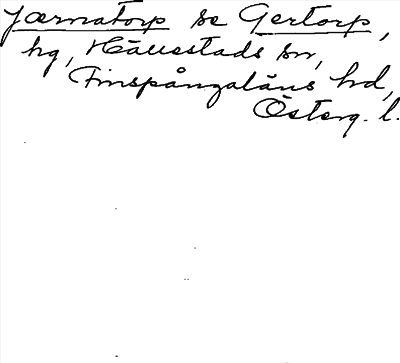 Jærnatorp se Gertorp,
hg, Hällestads sn,
Finspångaläns hd,
Österg. l.